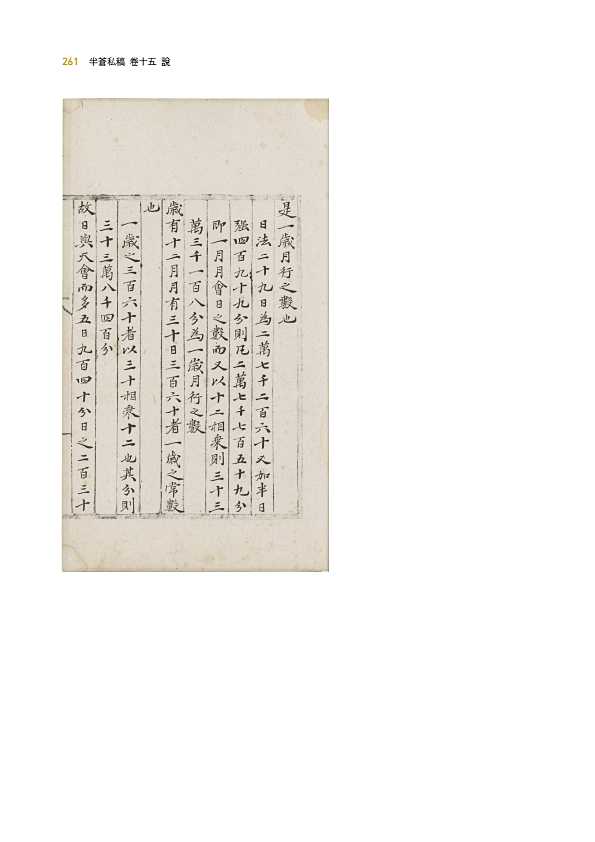 261 半蒼私稿 卷十五 說
是一歲月行之數也
日法二十九日為二萬七千二百六十又加半日
强四百九十九分則凡二萬七千七百五十九分
即一月月會日之數而又以十二相乘則三十三
萬三千一百八分為一歲月行之數
歲有十二月月有三十日三百六十者一歲之常數
也
一歲之三百六十者以三十相乘十二也其分則
三十三萬八千四百分
故日與天會而多五日九百四十分日之二百三十